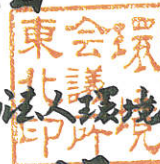 環境
会議所
東北印
法人環境